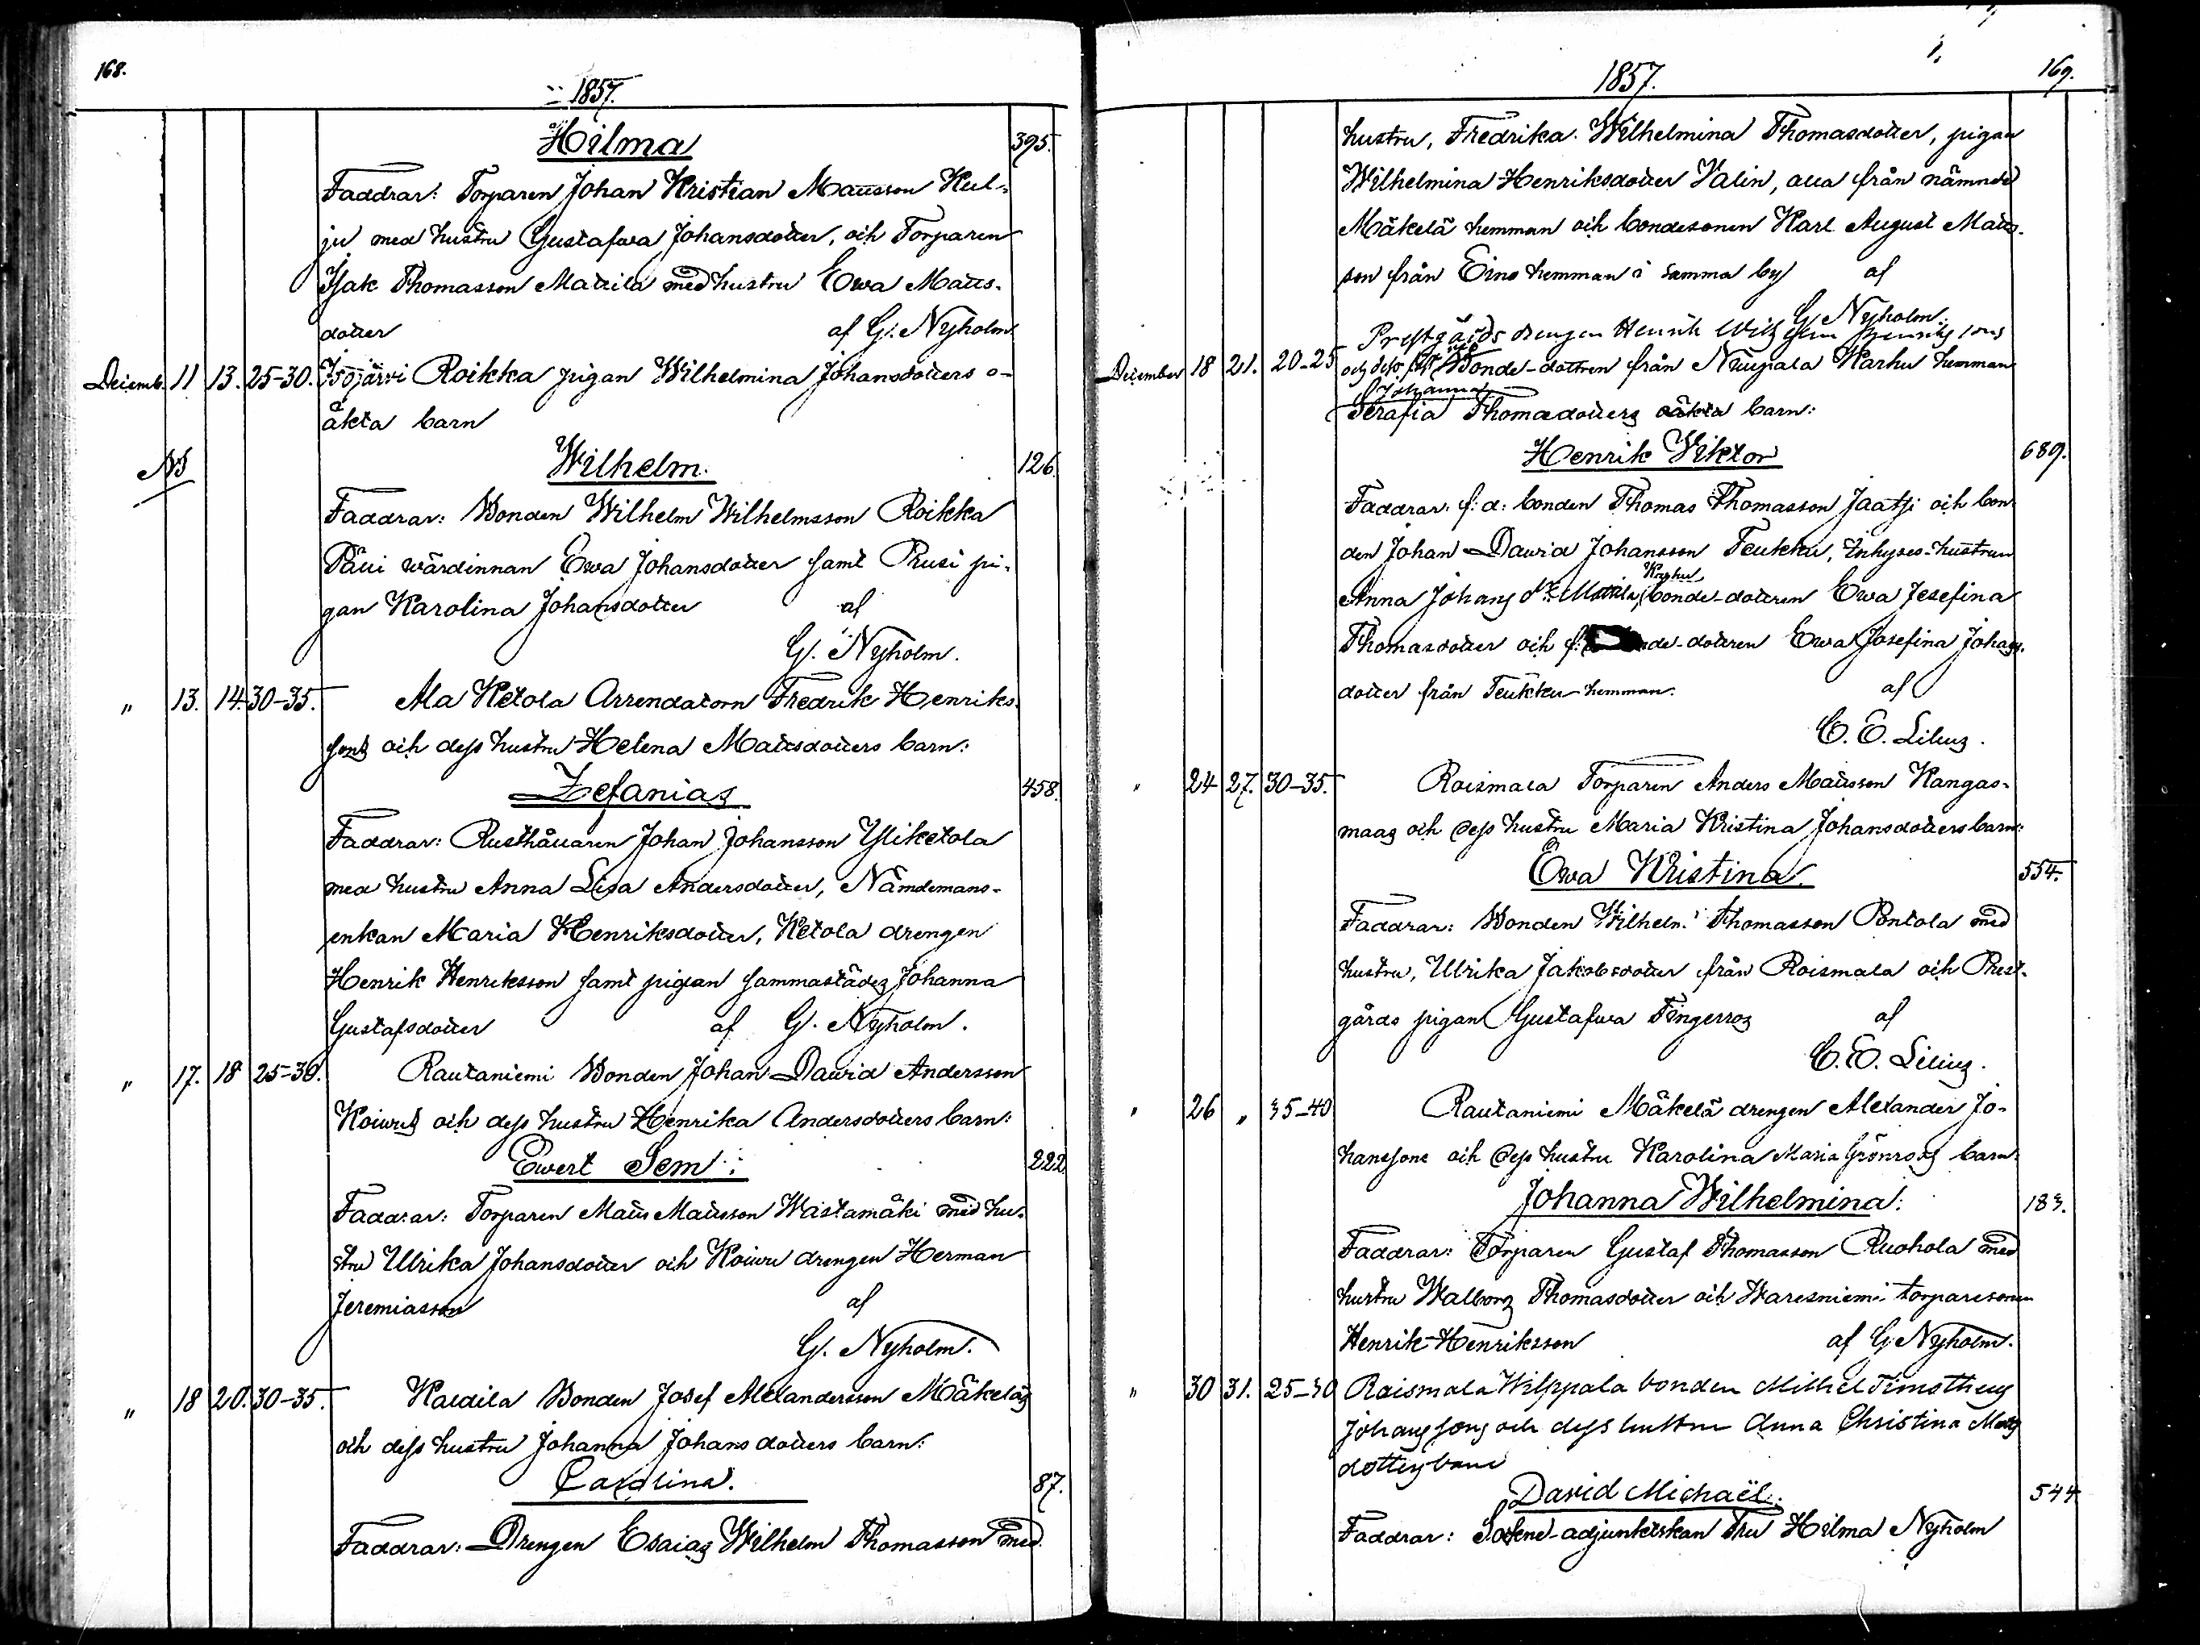 168.
1857.
Hilma 395.
Faddrar: Torparen Johan Kristian Mattsson Kul-
ju med hustru Gustafwa Johansdotter, och Torparen
Isak Thomasson Mattila med hustru Ewa Matts-
dotter af G. Nyholm
Decemb. 11 13. 25-30. Isojärvi Roikka pigan Wilhelmina Johansdotters o-
äkta barn
NB Wilhelm. 126.
Faddrar: Bonden Wilhelm Wilhelmsson Roikka
wärdinnan Ewa Johansdotter samt Prusi pi-
gan Karolina Johansdotter af
G. Nyholm.
" 13. 14. 30-35. Ala Ketola Arrendatorn Fredrik Henriks-
sons och dess hustru Helena Mattsdotters barn:
Zefanias 458.
Faddrar: Rusthållaren Johan Johansson Yliketola
med hustru Anna Lisa Andersdotter, Nämdemans-
enkan Maria Henriksdotter, Ketola drengen
Henrik Henriksson samt pigan sammastädes Johanna
Gustafsdotter af G. Nyholm.
" 17. 18 25-30. Rautaniemi Bonden Johan Dawid Andersson
Koiwus och dess hustru Henrika Andersdotters barn:
Ewert Sem: 222
Faddrar: Torparen Matts Mattsson Wastamäki med hu-
stru Ulrika Johansdotter och Koiwu drengen Herman
Jeremiasson af
G. Nyholm.
" 18 20. 30-35. Kaldila Bonden Josef Alexandersson Mäkeläs
och dess hustru Johanna Johansdotters barn:
Carolina. 87.
Faddrar: Drengen Esaias Wilhelm Thomasson med
1857. 169.
hustru, Fredrika Wilhelmina Thomasdotter, pigan
Wilhelmina Henriksdotter Valin, alla från nämnde
Mäkelä hemman och bondesonen Karl August Matts-
son från Eino hemman i samma by af
G. Nyholm.
Prestgårds drengen Henrik Wilhelm Henriks sons
December 18 21. 20-25 och dess Bonde-dottren från Nuupala Karhu hemman
Johanna
Serafia Thomasdotters oäkta barn:
Henrik Viktor 689.
Faddrar: f: d: bonden Thomas Thomasson Jaatsi och bon-
den Johan Dawid Johansson Teukku, Inhyses-hustrun
Karhu
Anna Johans dr Mattila, bonde-dottren Ewa Josefina
Thomasdotter och f: -dottren Ewa Josefina Johans-
dotter från Teukku hemman. af
C. E. Lilius.
" 24 27. 30-35. Roismala Torparen Anders Mattsson Kangas-
maas och dess hustru Maria Kristina Johansdotters barn:
Ewa Kristina. 554.
Faddrar: Bonden Wilhelm Thomasson Pontola med
hustru, Ulrika Jakobsdotter från Roismala och Prest-
gårds pigan Gustafwa Fingerros af
C. E. Lilius.
" 26 " 35-40 Rautaniemi Mäkelä drengen Alexander Jo-
hanssons och dess hustru Karolina Maria Grönroos barn:
Johanna Wilhelmina: 183.
Faddrar: Torparen Gustaf Thomasson Ruohola med
hustru Walborg Thomasdotter och Waresniemi torparesonen
Henrik Henriksson af G. Nyholm.
" 30 31. 25-30 Roismala Wilppala bonden Mikhel Timotheus
Johanssons och dess hustru Anna Christina Matts
dotters barn
David Michaël: 544
Faddrar: Sokne-adjunktskan Fru Hilma Nyholm